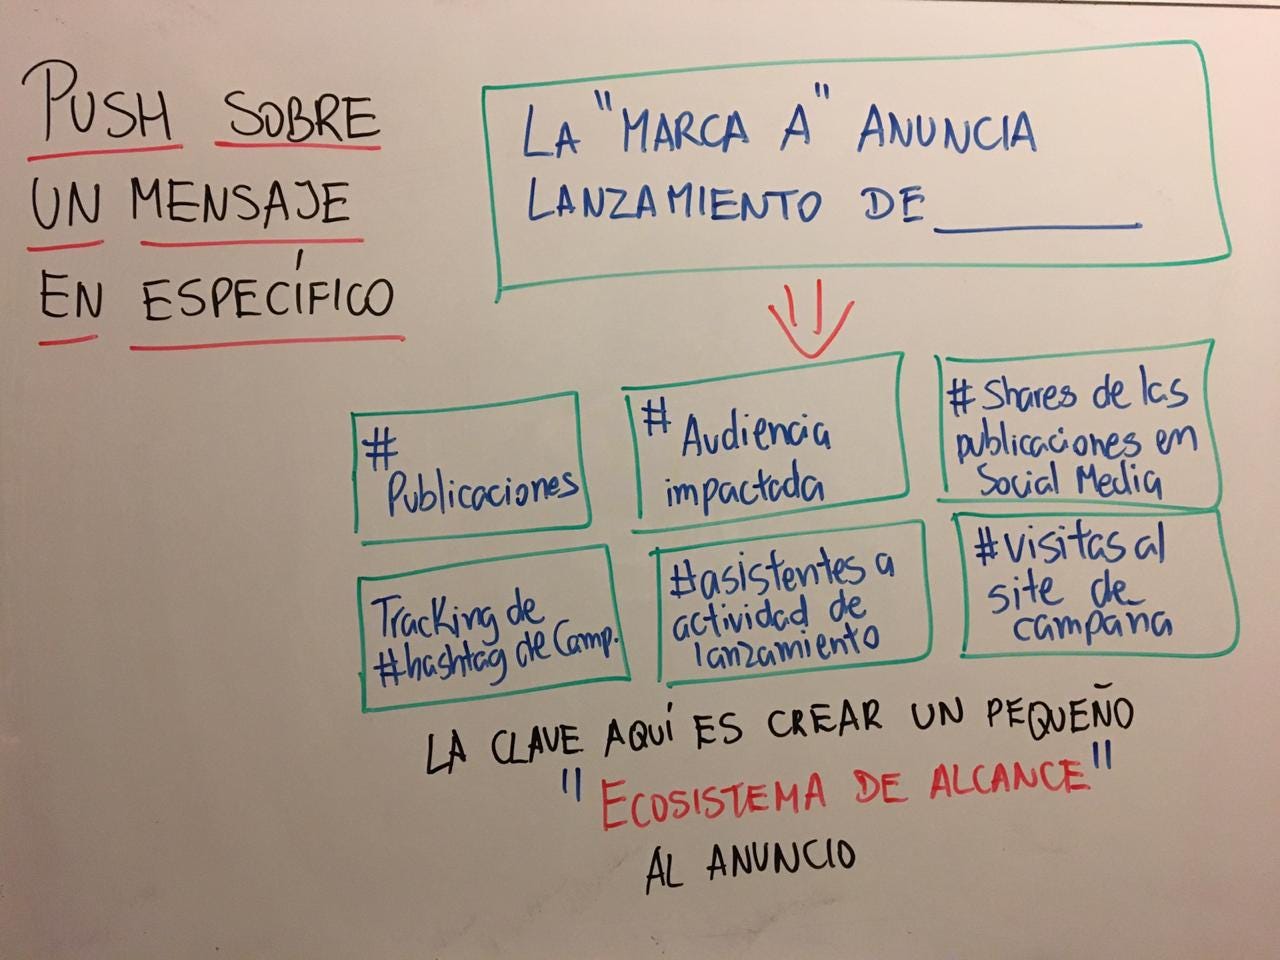 PUSH SOBRE
UN MENSAJE
EN ESPECÍFICO
LA "MARCA A" ANUNCIA
LANZAMIENTO DE ________
#
Publicaciones
# Audiencia
impactada
# Shares de las
publicaciones en
Social Media
Tracking de
#hashtag de Camp.
#asistentes a
actividad de
lanzamiento
#visitas al
site de
campaña
LA CLAVE AQUÍ ES CREAR UN PEQUEÑO
"ECOSISTEMA DE ALCANCE"
AL ANUNCIO